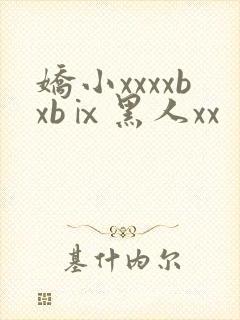 嬌小xxxxb
xb ix 黑人xx
基什内尔